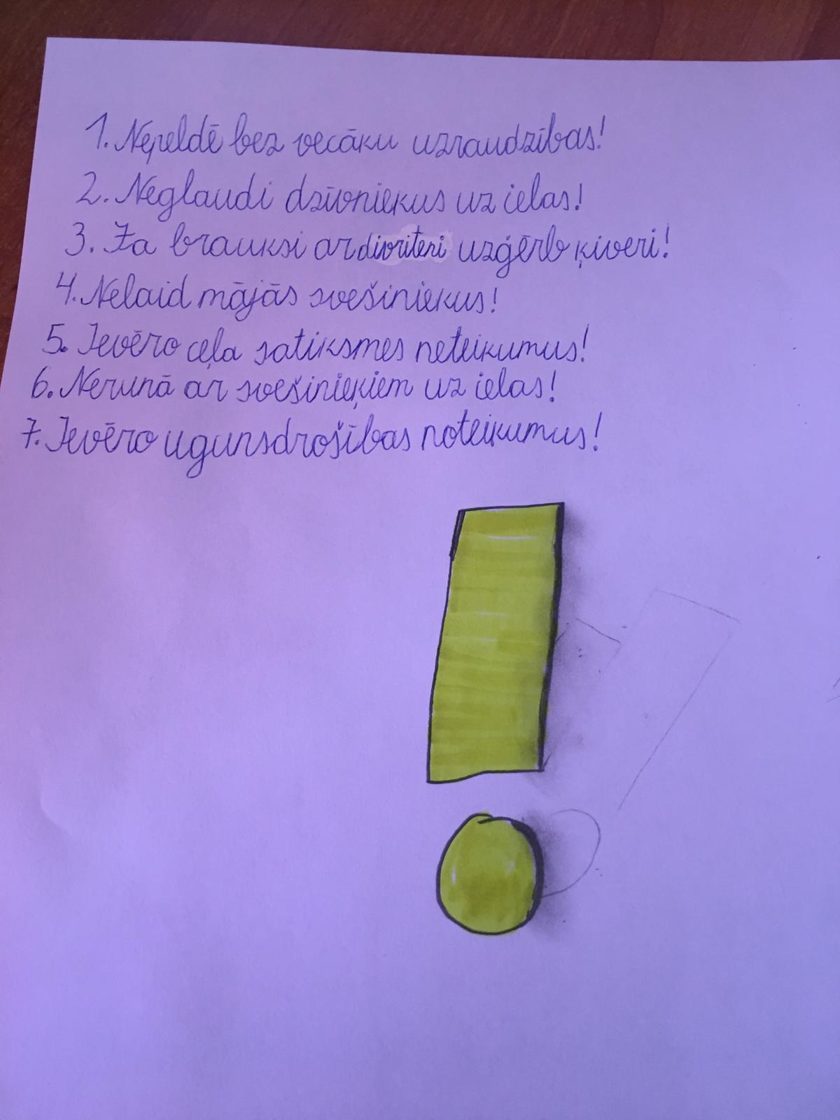 1. Nepeldē bez vecāku uzraudzības!
2. Neglaudi dzīvniekus uz ielas!
3. Ja brauksi ar divriteni uzģērb ķiveri!
4. Nelaid mājās svešiniekus!
5. Ievēro ceļa satiksmes neteikumus!
6. Nerunā ar svešinieķiem uz ielas!
7. Ievēro ugunsdrošības noteikumus!